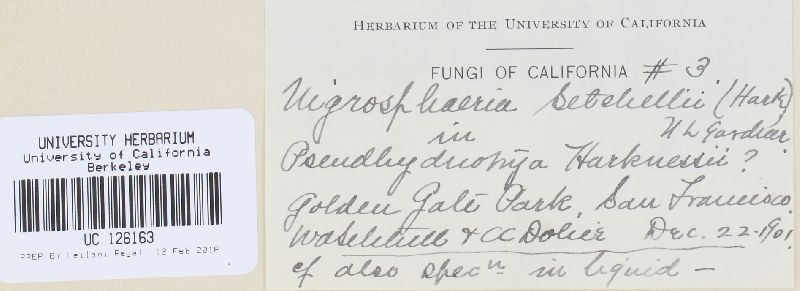 HERBARIUM OF THE UNIVERSITY OF CALIFORNIA
FUNGI OF CALIFORNIA # 3
Nigrosphaeria Setchellii (Hark)
in N L Gardner
Pseudhydnotrya Harknessii ?
Golden Gate Park, San Francisco
WA Setchell & CC Dobie Dec. 22-1901
cf also specn in liquid —
UNIVERSITY HERBARIUM
University of California
Berkeley
UC 126163
PREP Billelloni Regal, 12 Feb 2018